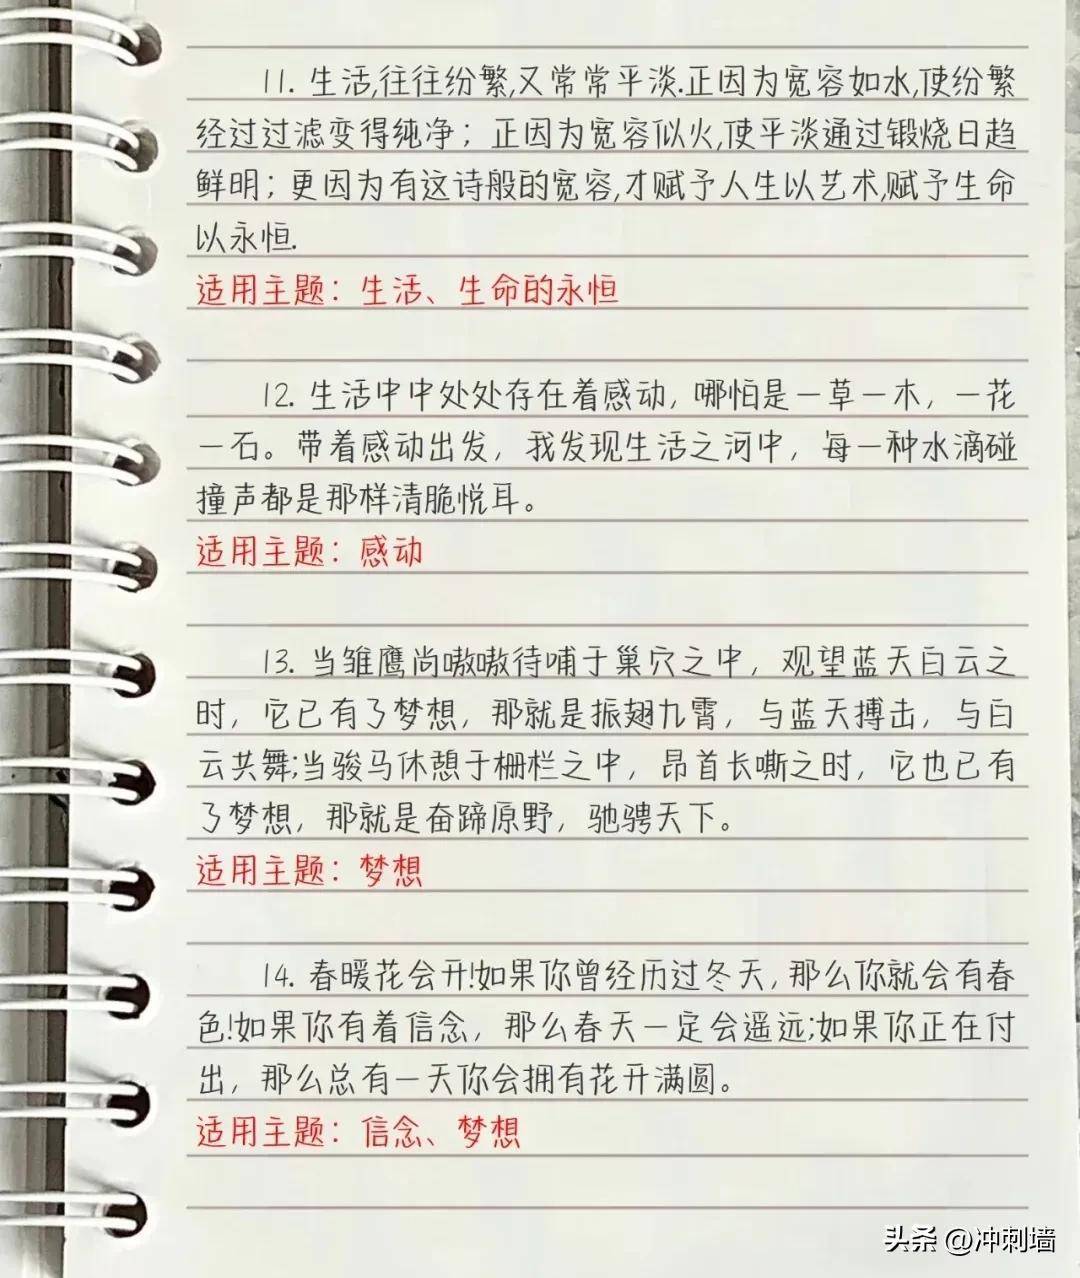 11. 生活,往往纷繁,又常常平淡.正因为宽容如水,使纷繁
经过过滤变得纯净；正因为宽容似火,使平淡通过锻烧日趋
鲜明；更因为有这诗般的宽容,才赋予人生以艺术,赋予生命
以永恒.
适用主题：生活、生命的永恒
12. 生活中中处处存在着感动，哪怕是一草一木，一花
一石。带着感动出发，我发现生活之河中，每一种水滴碰
撞声都是那样清脆悦耳。
适用主题：感动
13. 当雏鹰尚嗷嗷待哺于巢穴之中，观望蓝天白云之
时，它已有了梦想，那就是振翅九霄，与蓝天搏击，与白
云共舞;当骏马休憩于栅栏之中，昂首长嘶之时，它也已有
了梦想，那就是奋蹄原野，驰骋天下。
适用主题：梦想
14. 春暖花会开!如果你曾经历过冬天，那么你就会有春
色!如果你有着信念，那么春天一定会遥远;如果你正在付
出，那么总有一天你会拥有花开满圆。
适用主题：信念、梦想
头条 @冲刺墙